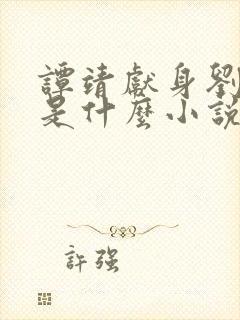 譚靖獻身劉
是什麼小說
許強